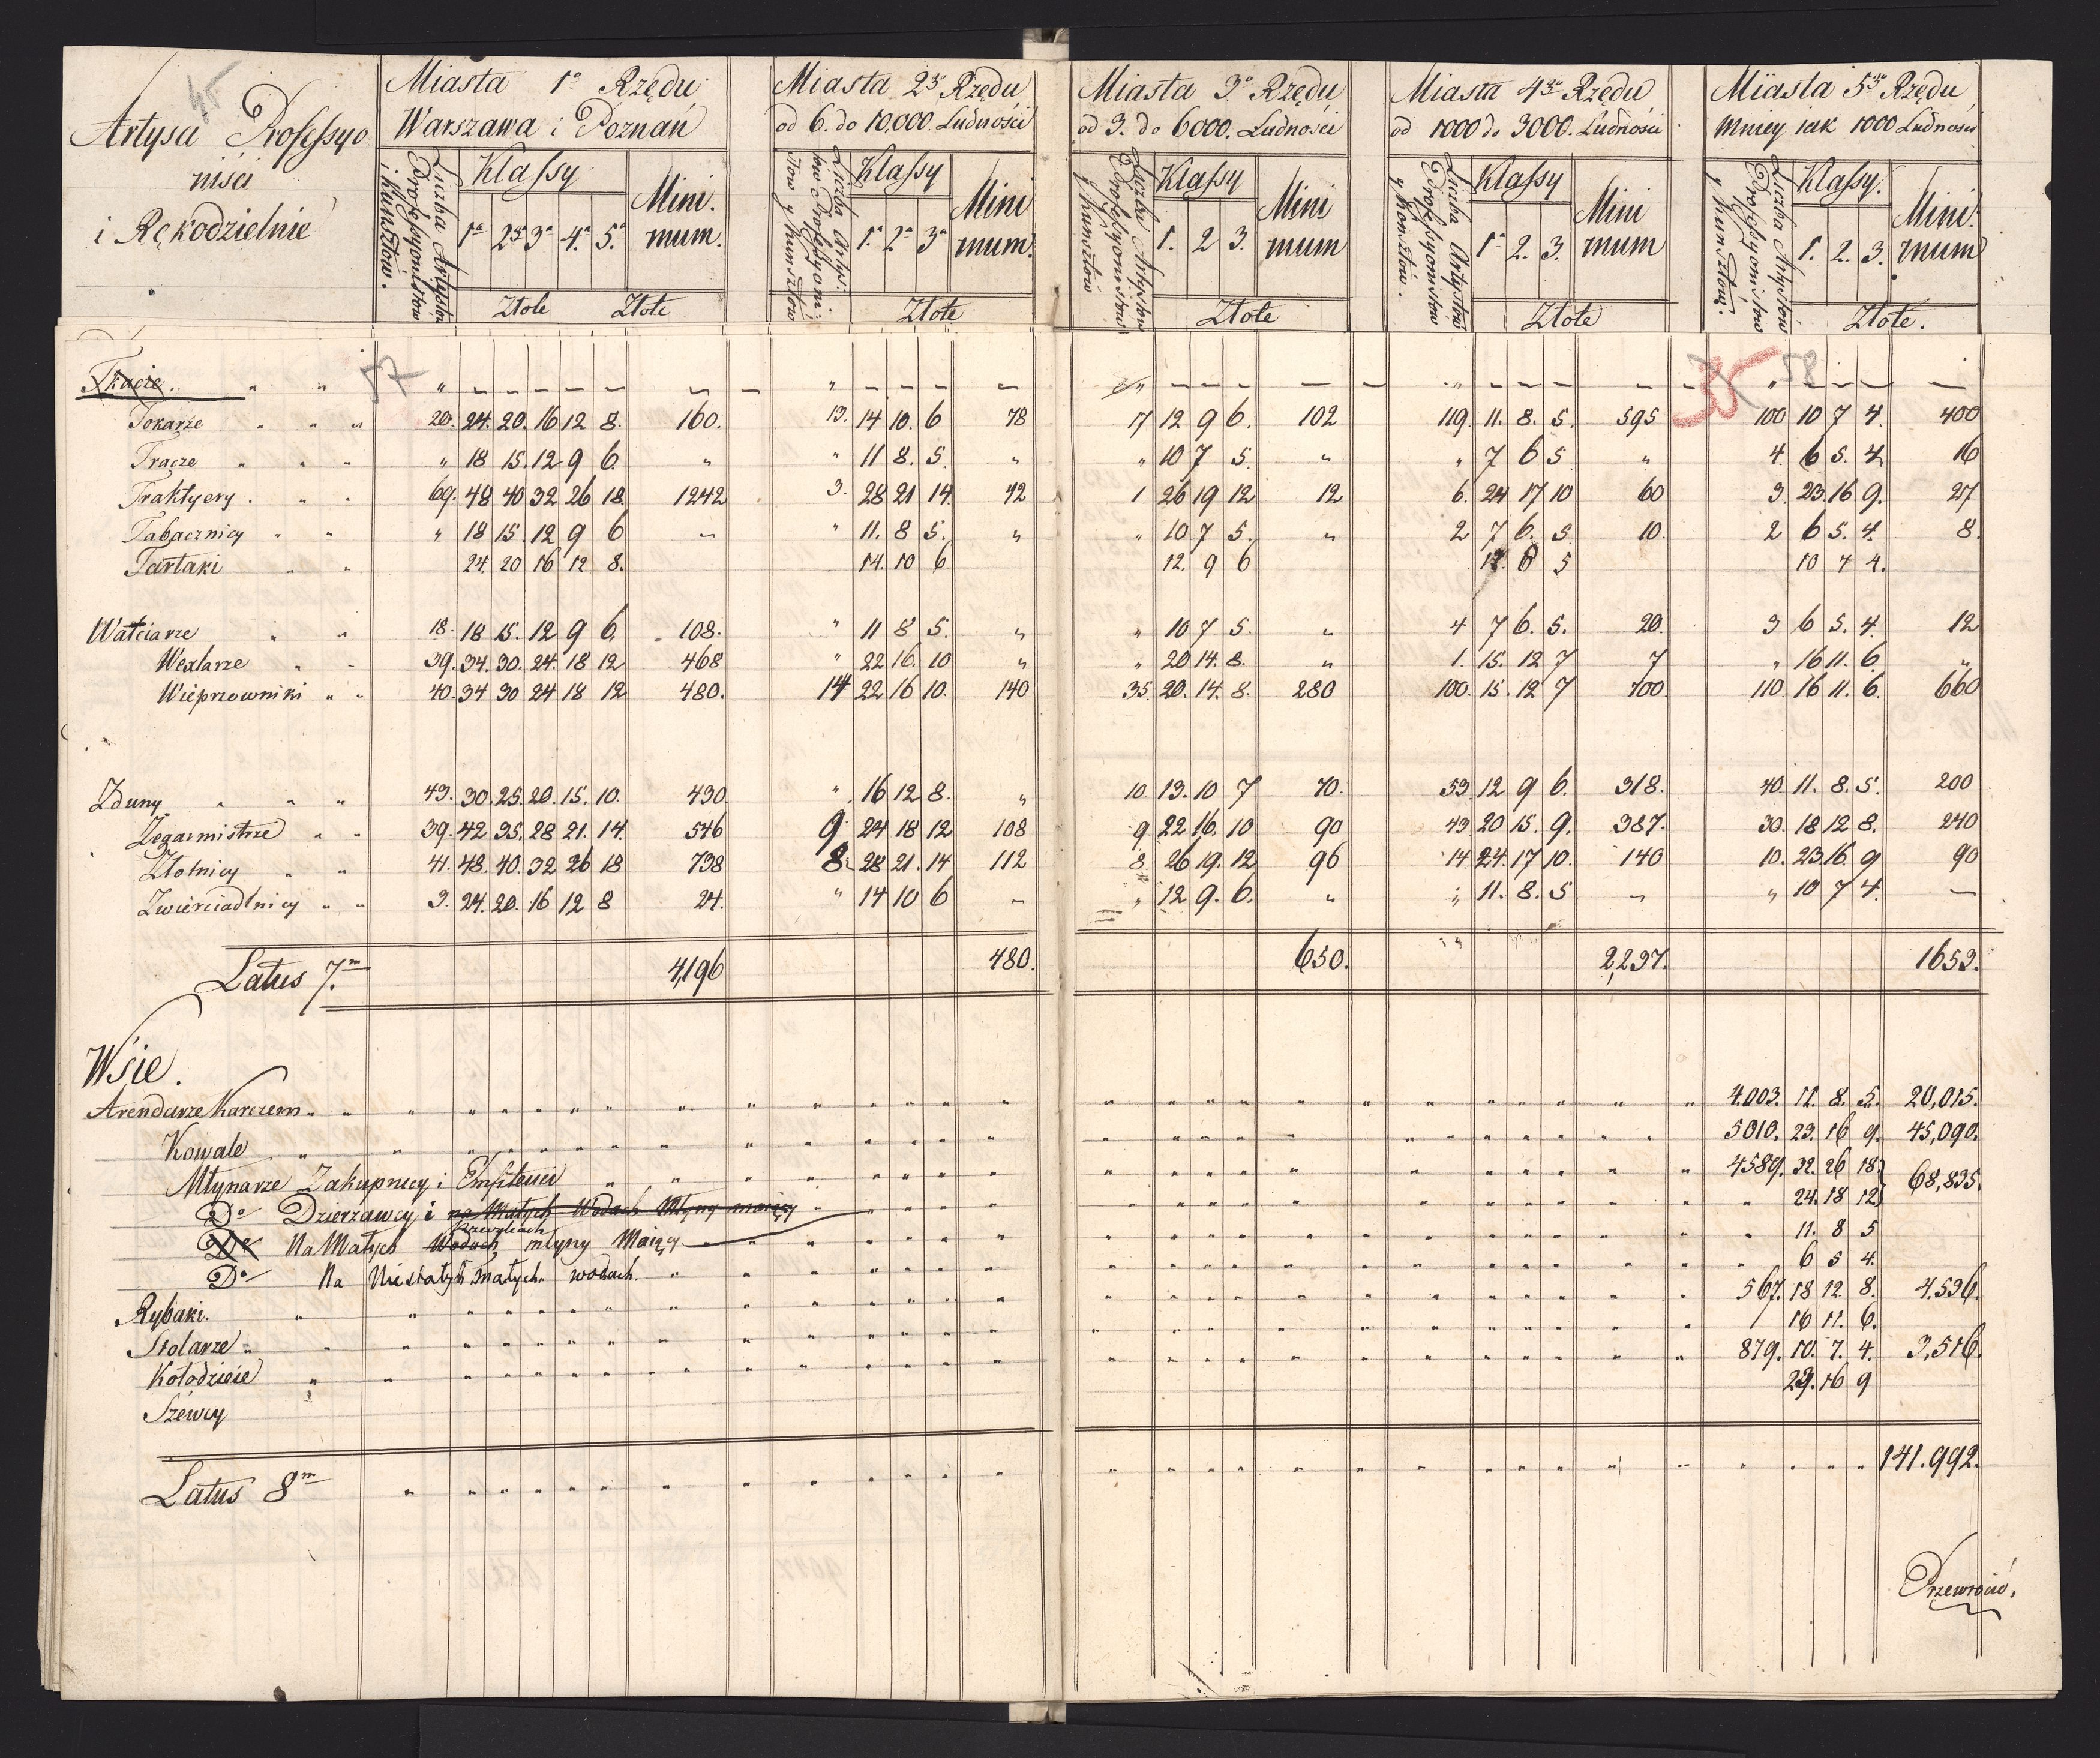 45
Artyści Professyo
niści
i Rękodzielnie
Miasta 1º Rzędu
Warszawa i Poznań
Liczba Artystów Professyonistów i Kunsztów.
Klassy
1ª 2ª 3ª 4ª 5ª
Mini.
mum.
Złote Złote
Miasta 2go Rzędu
od 6. do 10,000. Ludności
Klassy
1ª 2ª 3ª
Mini
mum.
Złote
Miasta 3º Rzędu
od 3. do 6000. Ludności
Liczba Artystów Professyonistów y Kunsztów
Klassy
1. 2 3.
Mini
mum
Złote
Miasta 4go Rzędu
od 1000 do 3000. Ludności
Liczba Artystów Professyonistów y Konsztów.
Klassy
1ª 2. 3.
Mini
mum
Złote
Miasta 5go Rzędu
mniey iak 1000 Ludności
Liczba Artystów Professyonistow y Kunsztów.
Klassy.
1. 2. 3.
Mini.
mum
Złote.
57 35 58
Tkacze. " " " – – – – – – – " – – – – " – – – – – " – – – – – " – – – –
Tokarze " " " 20. 24. 20. 16 12 8. 160. 13. 14 10. 6 78 17 12 9 6. 102 119. 11. 8. 5. 595 100 10 7 4. 400
Tracze " " " " 18 15. 12 9 6. " " 11 8. 5. " " 10 7 5. " " 7 6 5 " 4. 6 5. 4. 16
Traktyery. " " 69. 48 40 32 26 18. 1242 3. 28 21 14. 42 1 26 19 12 12 6. 24 17 10 60 3. 23 16 9. 27
Tabacznicy " " " 18 15. 12 9 6 – " 11. 8 5. " " 10 7 5. " 2 7 6. 5. 10. 2 6 5. 4. 8.
Tartaki " " 24. 20 16 12 8. 14. 10 6 12. 9 6 8 5 10 7 4.
Watciarze " " 18. 18 15. 12 9 6. 108. " 11 8 5. " " 10 7 5. " 4 7 6. 5. 20. 3 6 5. 4. 12
Wexlarze " " 39. 34. 30. 24. 18 12 468 " 22 16. 10 " " 20 14. 8. " 1. 15. 12 7 7 " 16 11. 6. "
Wieprzowniki " " 40. 34 30 24 18 12 480. 14 22 16 10. 140 35. 20. 14. 8. 280 100. 15. 12 7 700. 110. 16 11. 6. 660
Zduny " " " 43. 30. 25. 20. 15. 10. 430 " 16 12 8. " 10. 13. 10 7 70. 53 12 9 6. 318. 40. 11. 8. 5. 200
Zegarmistrze " " 39. 42. 35. 28 21. 14. 546 9. 24 18 12 108 9. 22 16. 10 90 43 20 15. 9. 387. 30. 18 12 8. 240
Złotnicy " " 41. 48. 40. 32 26 18 738 8. 28 21. 14 112 8. 26 19. 12 96 14. 24. 17 10. 140 10. 23 16. 9 90
Zwierciadlnicy " " 3. 24. 20. 16 12 8 24. " 14 10 6 – " 12 9. 6. " " 11. 8. 5 – " 10 7 4. –
Latus 7.m 4,196 480. 650. 2,237. 1653.
Wsie.
Arendarze Karczem " " 4.003. 11. 8. 5. 20,015.
Kowale " " 5010. 23. 16 9. 45,090.
Młynarze Zakupnicy i Emfiteuci " " 4589. 32. 26 18. 68,835.
Dº Dzierzawcy i na Małych Wodach Młyny maiący " 24. 18 12
Krzynkach
Dº Na Małych Wodach młyny Maiący " 11. 8 5
Dº Na Niestałych małych wodach. " 6 5 4.
Rybaki. " 567. 18 12 8. 4.536.
Stolarze " 16 11. 6.
Kołodzieie " 879. 10. 7. 4. 3,516.
Szewcy 23. 16 9
Latus 8m " 141.992.
Przewrócić,